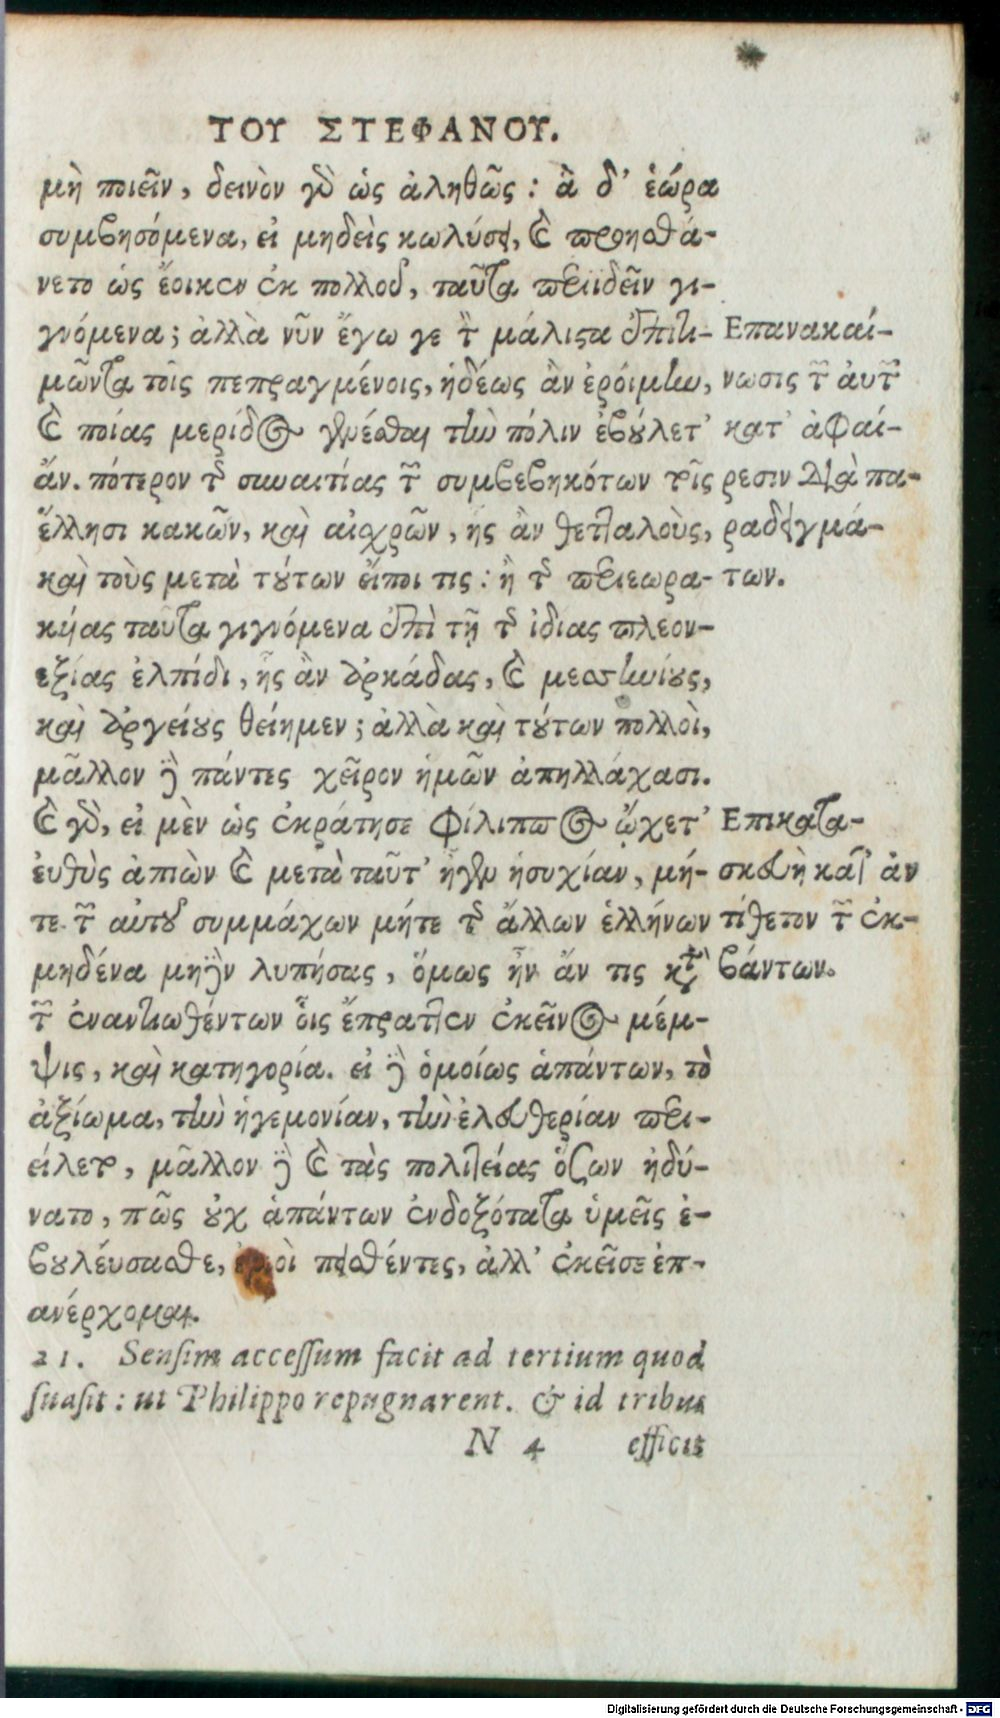 ΤΟΥ ΣΤΕΦΑΝΟΥ.
μὴ ποιεῖν, δεινὸν γὸ ὡς ἀληθῶς : ἃ δ' ἑώρα
συμβησόμενα, εἰ μηδεὶς κωλύσει, καὶ προησθά-
νετο ὡς ἔοικεν ἐκ πολλοῦ, ταῦτα περιϊδεῖν γι-
γνόμενα; ἀλλὰ νῦν ἔγω γε τ μάλιστα ἐπιτι-
μῶντα τοῖς πεπραγμένοις, ἡδέως ἂν ἐροίμην,
καὶ ποίας μερίδος γενέσθαι τὴν πόλιν ἐβούλετ'
ἄν. πότερον τῆς συναιτίας τῶν συμβεβηκότων τοῖς
ἕλλησι κακῶν, καὶ αἰσχρῶν, ἧς ἂν θετταλοὺς,
καὶ τοὺς μετὰ τούτων εἴποι τις : ἢ τῆς περιεωρα-
κυίας ταῦτα γιγνόμενα ἐπὶ τῇ τῆς ἰδίας πλεον-
εξίας ἐλπίδι, ἧς ἂν ἀρκάδας, καὶ μεσηνίους,
καὶ ἀργείους θείημεν; ἀλλὰ καὶ τούτων πολλοὶ,
μᾶλλον δὲ πάντες χεῖρον ἡμῶν ἀπηλλάχασι.
καὶ γὸ, εἰ μὲν ὡς ἐκράτησε Φίλιππος ᾤχετ'
ἐυθὺς ἀπιὼν καὶ μετὰ ταῦτ' ἦγεν ἡσυχίαν, μή-
τε τῶν αὑτοῦ συμμάχων μήτε τῶν ἄλλων ἑλλήνων
μηδένα μηδὲν λυπήσας, ὅμως ἦν ἄν τις κατὰ
τῶν ἐναντιωθέντων οἷς ἔπραττεν ἐκεῖνος μέμ-
ψις, καὶ κατηγορία. εἰ δὲ ὁμοίως ἁπάντων, τὸ
ἀξίωμα, τὴν ἡγεμονίαν, τὴν ἐλευθερίαν περι-
είλετο, μᾶλλον δὲ καὶ τὰς πολιτείας ὅσων ἠδύ-
νατο, πῶς οὐχ ἁπάντων ἐνδοξότατα ὑμεῖς ἐ-
βουλέυσασθε, ἐμοὶ πεισθέντες, ἀλλ' ἐκεῖσε ἐπ-
ανέρχομαι.
Επανακαί-
νωσις τῶν αὐτῶν
κατ' ἀφαί-
ρεσιν διὰ πα-
ραδειγμά-
των.
Επικατα-
σκευὴ κατ' ἀν
τίθετον τῶν ἐκ-
βάντων.
21. Sensim accessum facit ad tertium quod
suasit : ut Philippo repugnarent. & id tribus
N 4 efficit
Digitalisierung gefördert durch die Deutsche Forschungsgemeinschaft - DFG